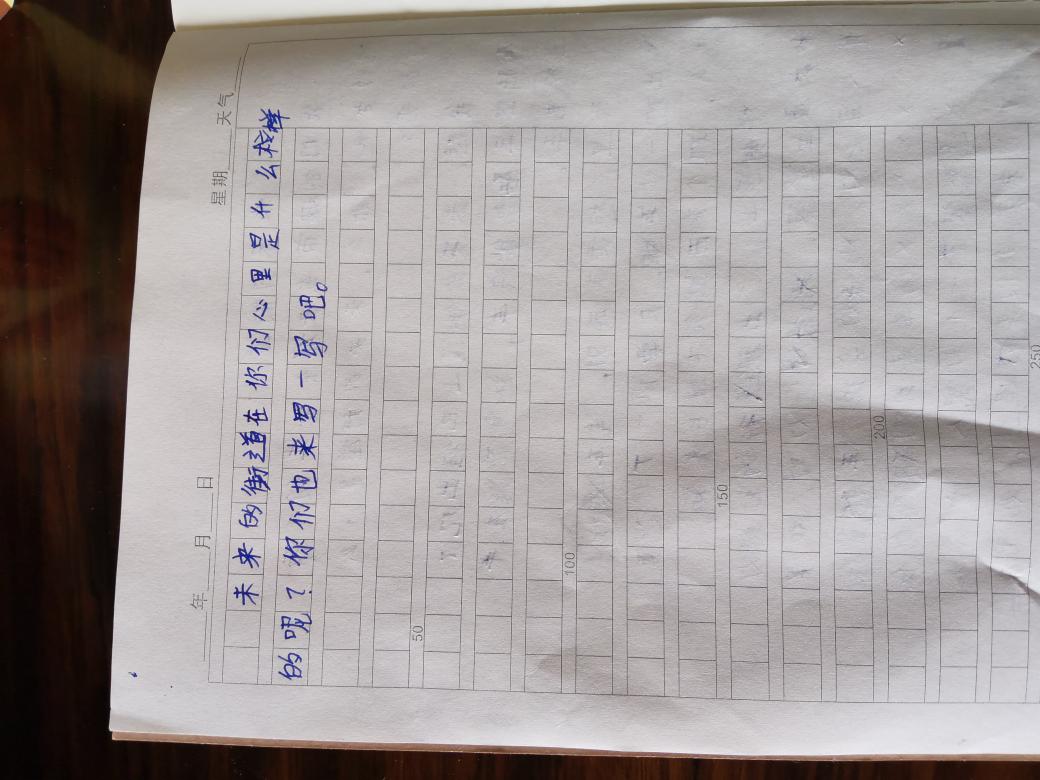 年 月 日 星期 天气
未来的街道在你们心里是什么模样
的呢？你们也来写一写吧。
50
100
150
200
250